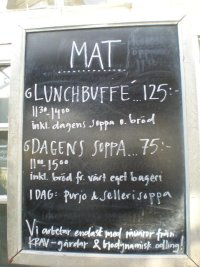 MAT
LUNCHBUFFÉ...125:-
11:30-14:00
inkl. dagens soppa o. bröd
DAGENS SOPPA...75:-
11:00-15:00
inkl. bröd fr. vårt eget bageri
IDAG: purjo & sellerisoppa
Vi arbetar endast med råvaror från
KRAV-gårdar & biodynamisk odling!